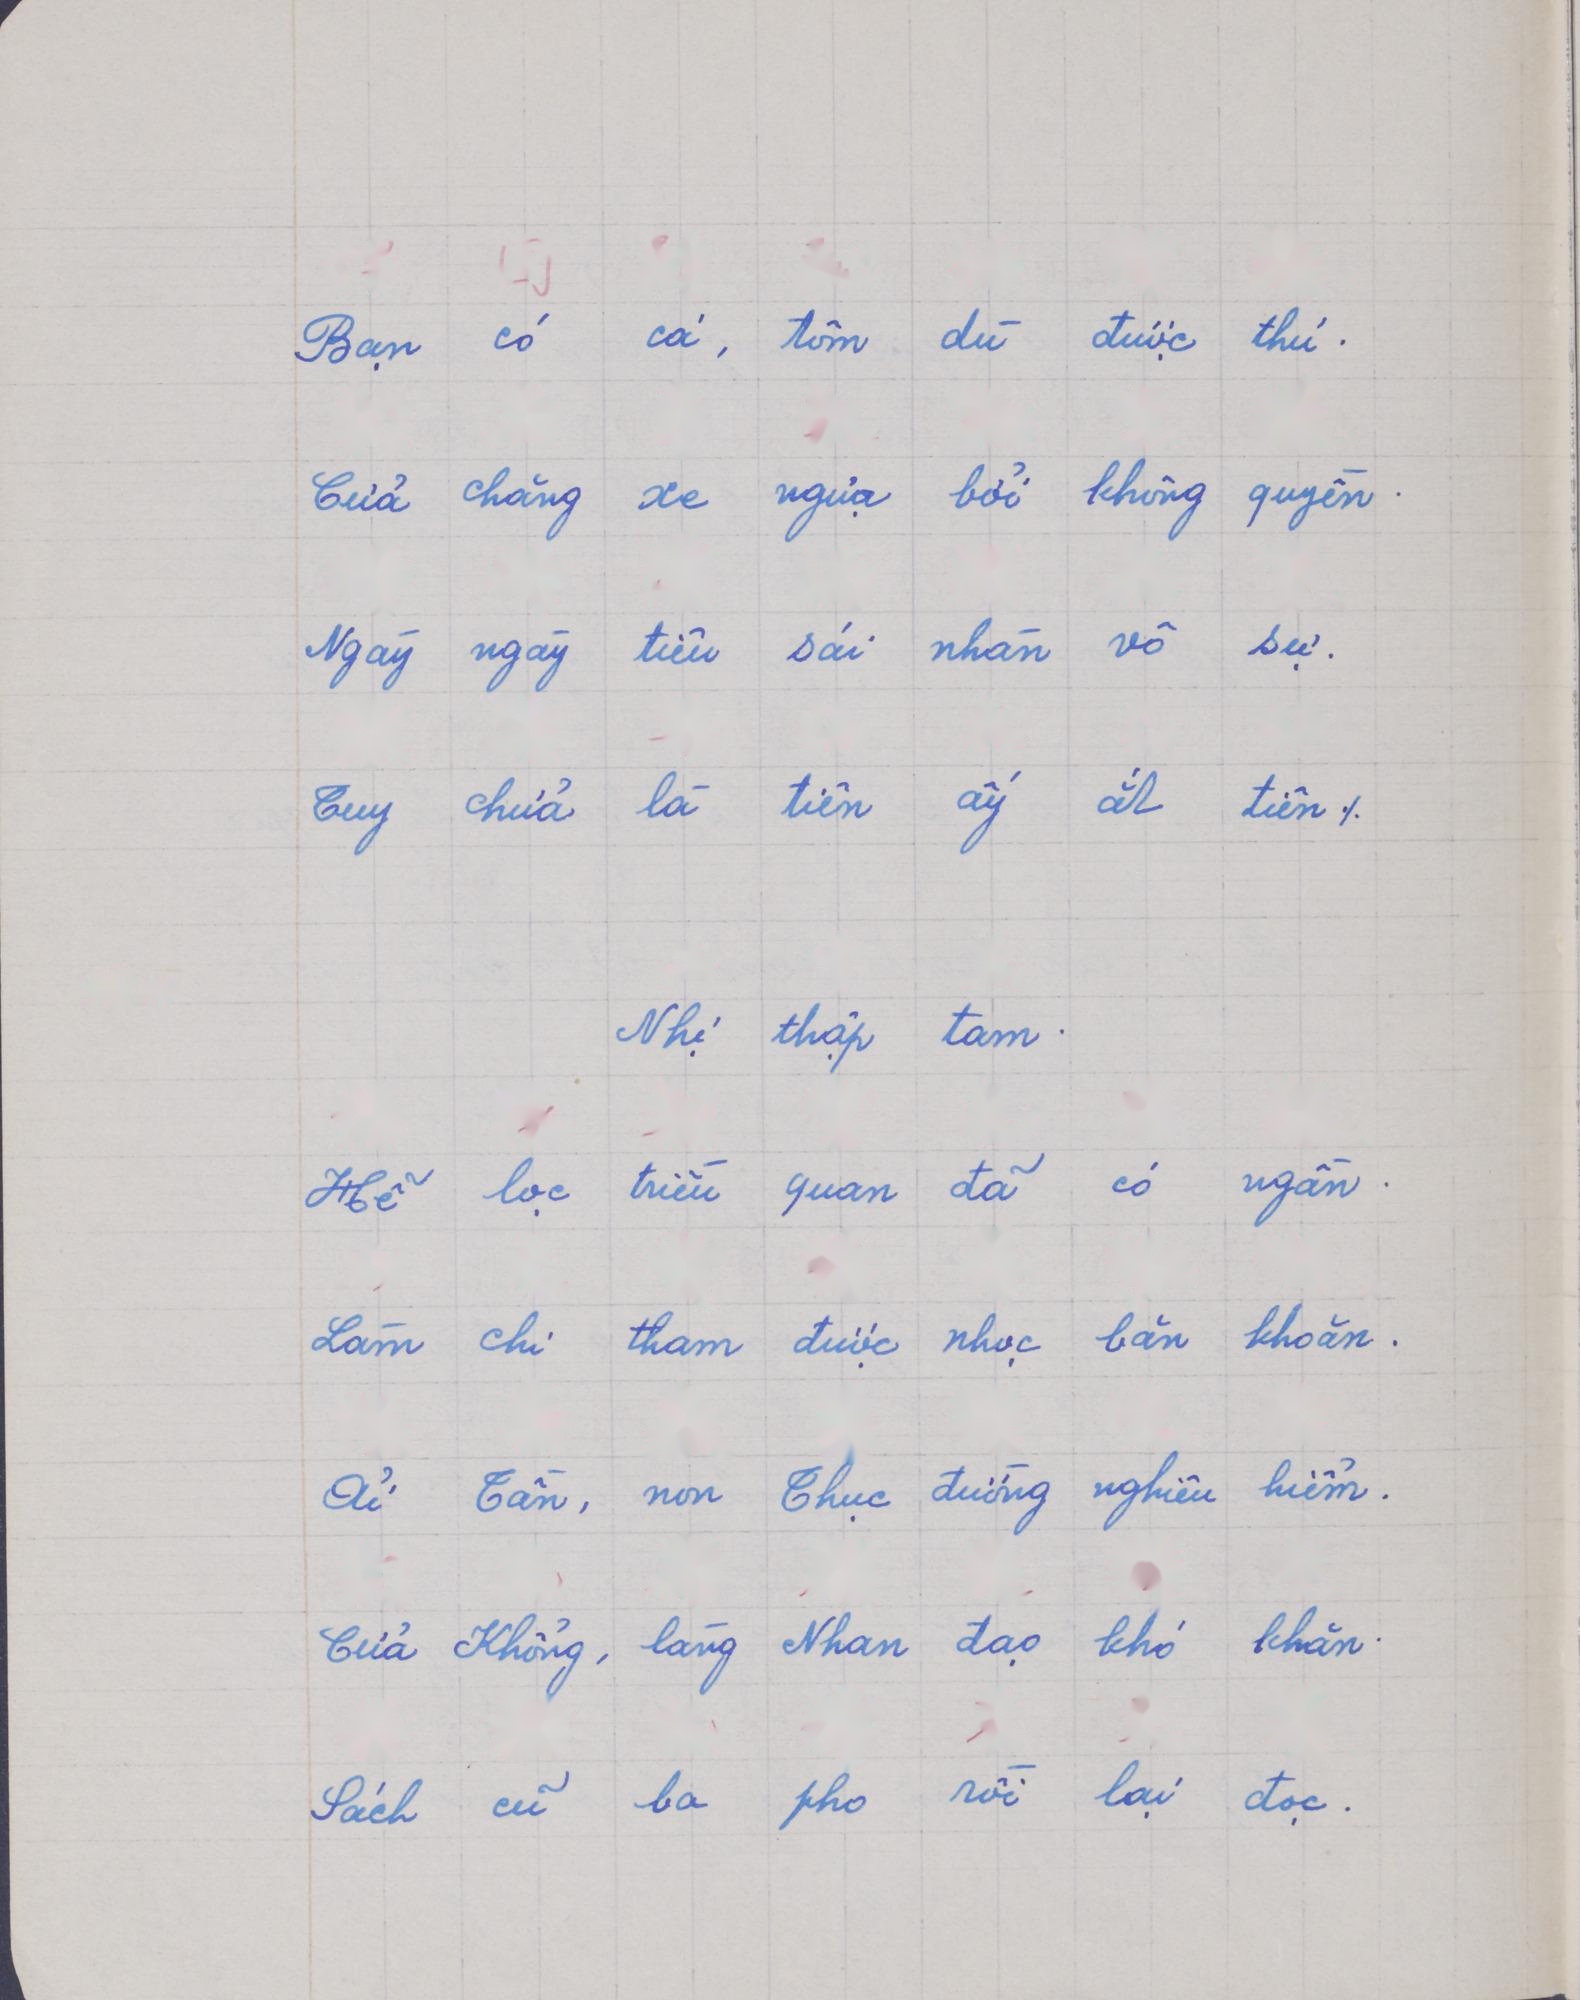 Bạn có cá, tôm dù được thú.
Cửa chăng xe ngựa bởi không quyền.
Ngày ngày tiêu sái nhàn vô sự.
Tuy chửa là tiên ấy ắt tiên ⁒
Nhị thập tam.
Hễ lọc triều quan đã có ngần.
Làm chi tham được nhọc băn khoăn.
Ải Tần, non Thục đường nghiêu hiểm.
Cửa Khổng, làng Nhan đạo khó khăn.
Sách cũ ba pho rồi lại đọc.